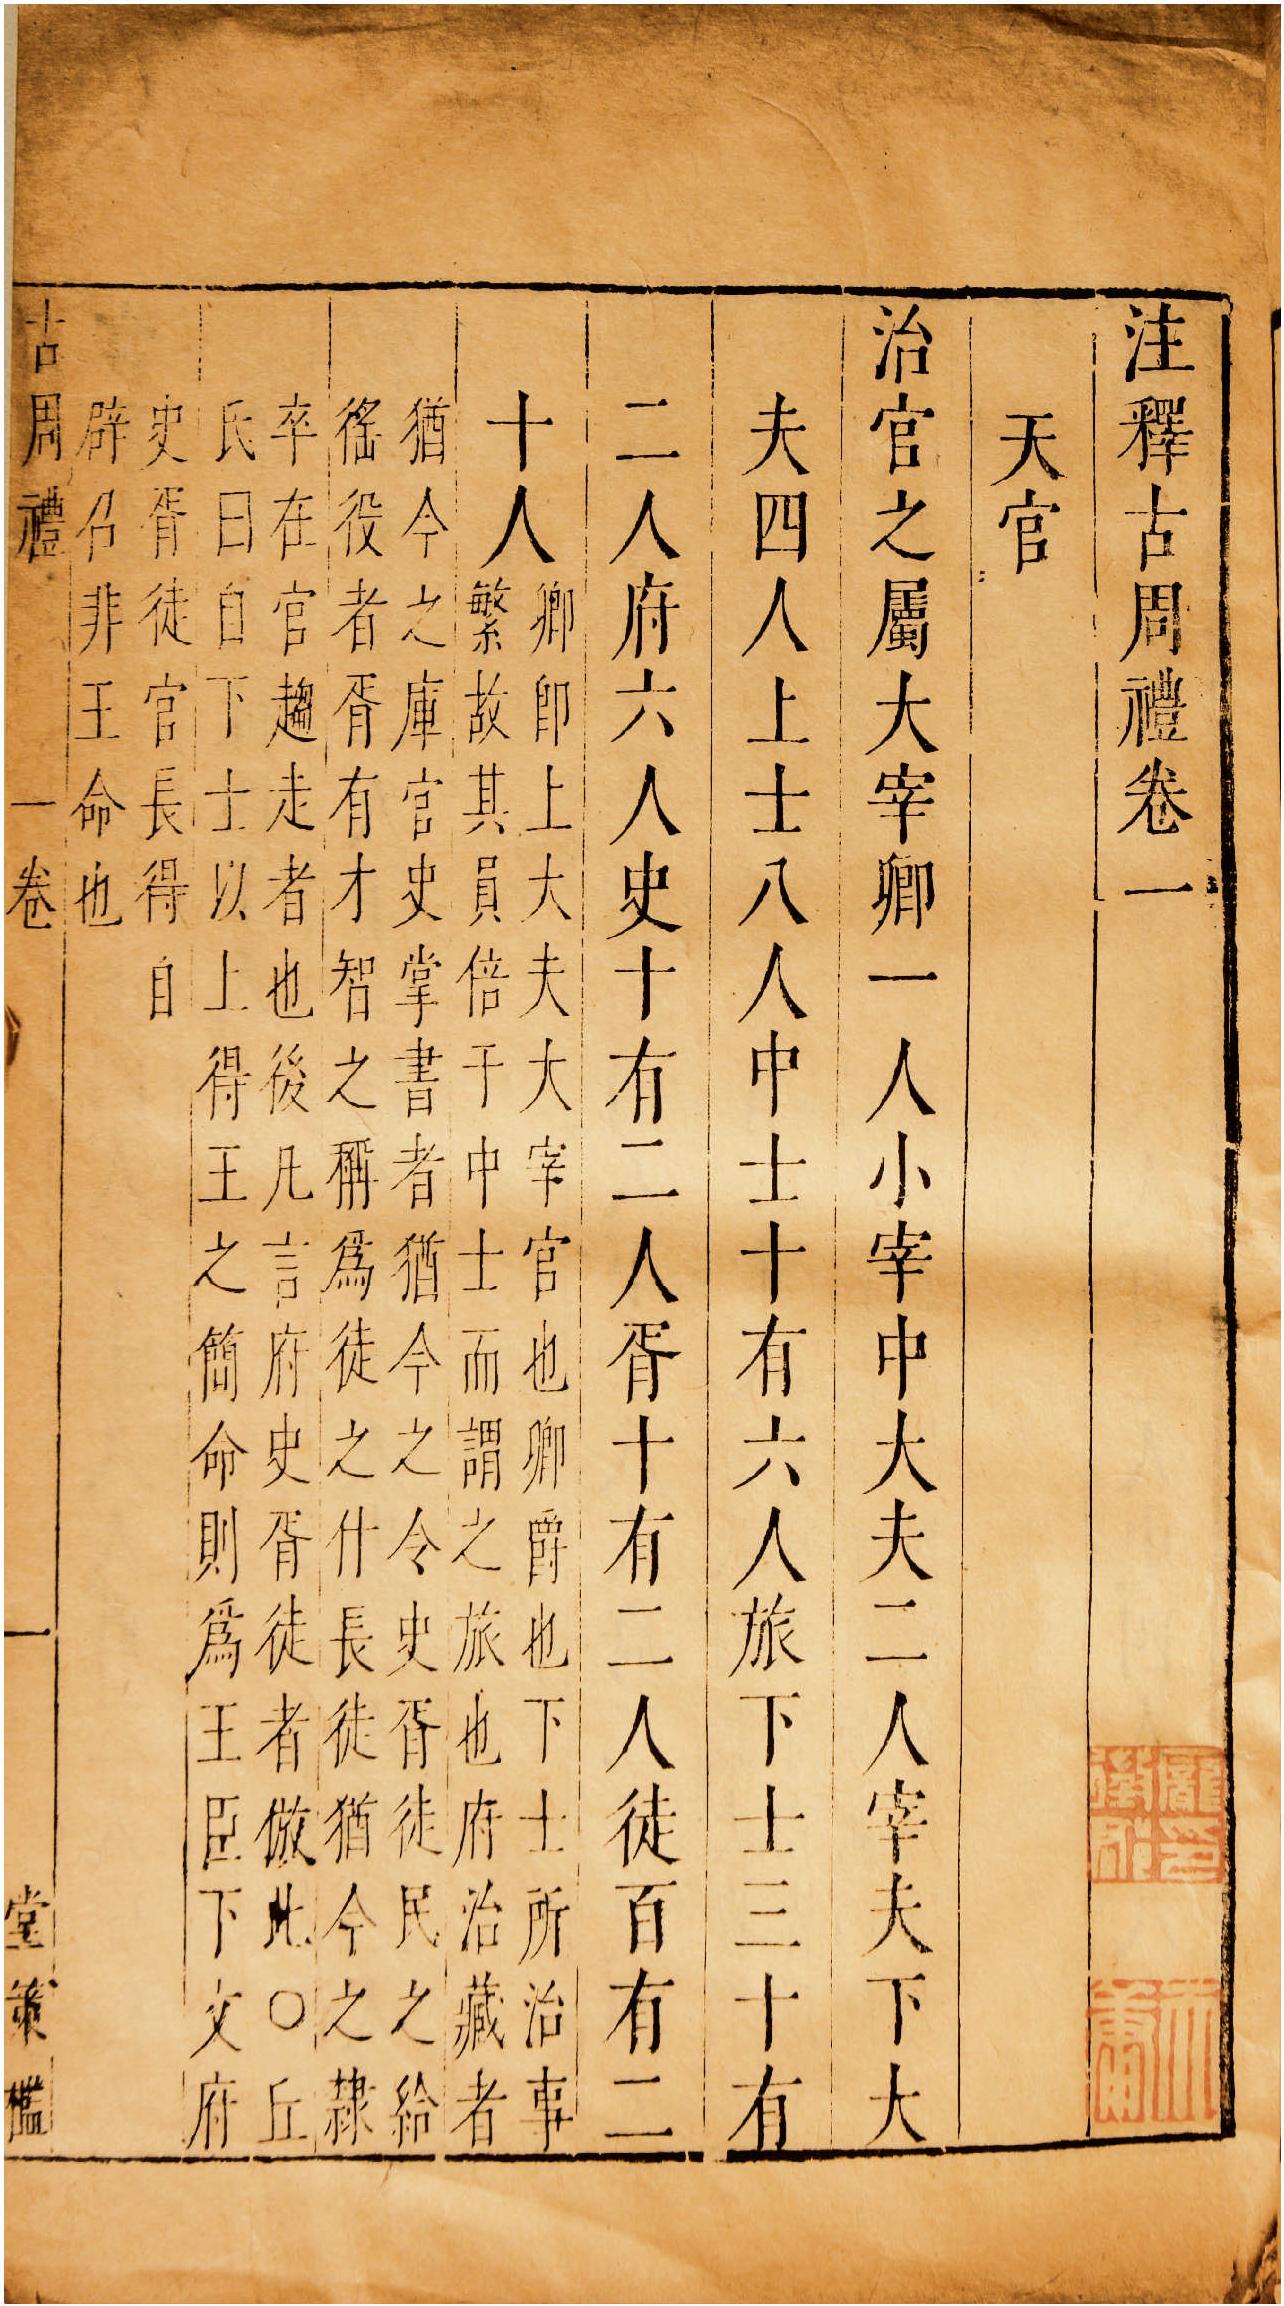 注釋古周禮卷一
天官
治官之屬大宰卿一人小宰中大夫二人宰夫下大
夫四人上士八人中士十有六人旅下士三十有
二人府六人史十有二人胥十有二人徒百有二
十人
卿卽上大夫大宰官也卿爵也下士所治事
繁故其員倍于中士而謂之旅也府治藏者
猶今之庫官史掌書者猶今之令史胥徒民之給
徭役者胥有才智之稱爲徒之什長徒猶今之隸
卒在官趨走者也後凡言府史胥徒者倣此〇丘
氏曰自下士以上得王之簡命則爲王臣下文府
史胥徒官長得自
辟召非王命也
古周禮 一卷 一 堂策檻